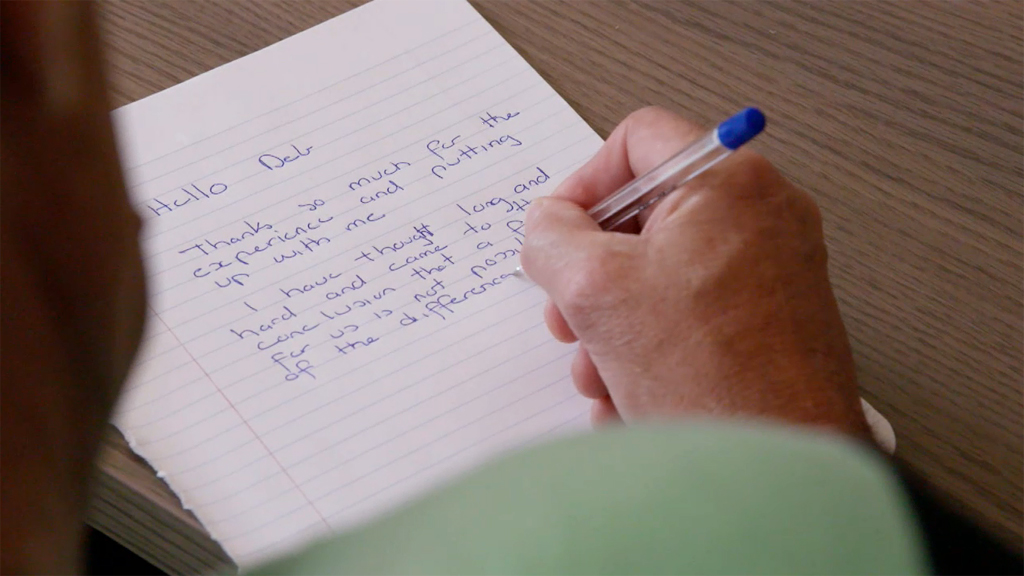 Hallo Deb
Thanks so much for the
experience and putting
up with me
I have thought long and
hard and came to
conclusion that a
for us is not
of the